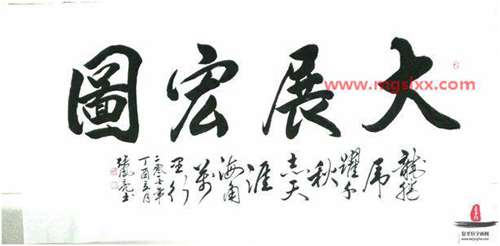 大展宏圖
龍騰
虎
躍千
秋
志天
涯
海角
萬
里行
二零一七年
丁酉五月
www.mgslxx.com